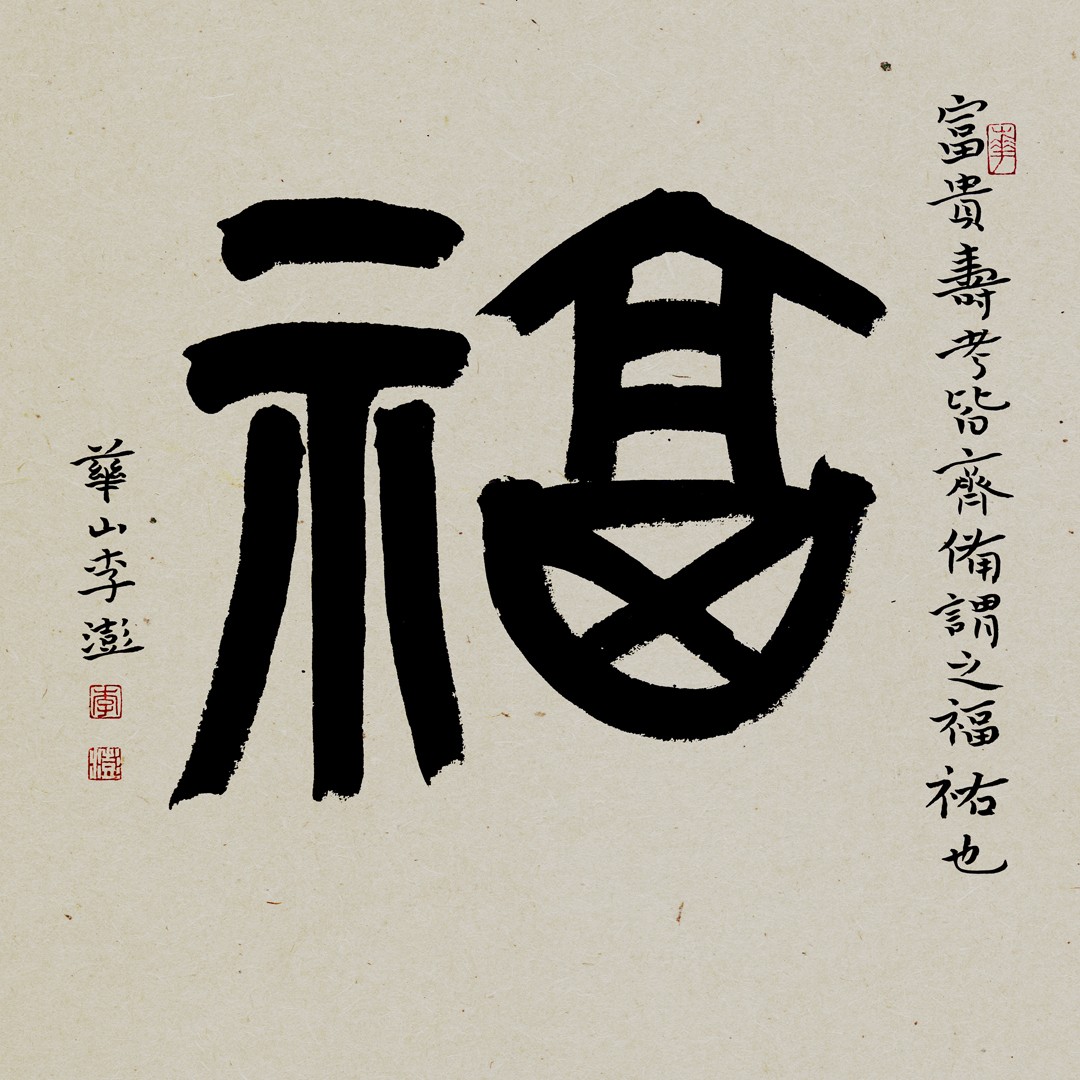 富貴壽考皆齊備謂之福祐也
福
華山李澎
李
澎